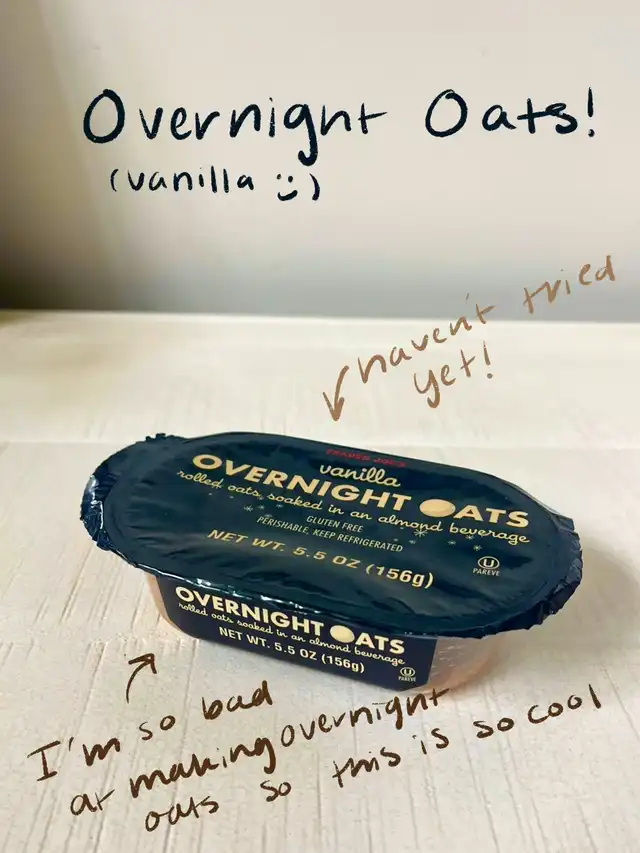 Overnight Oats!
(vanilla :))
haven't tried
yet!
TRADER JOE'S
vanilla
OVERNIGHT OATS
rolled oats, soaked in an almond beverage
GLUTEN FREE
PERISHABLE, KEEP REFRIGERATED
NET WT. 5.5 OZ (156g)
U
PAREVE
OVERNIGHT OATS
rolled oats soaked in an almond beverage
NET WT. 5.5 OZ (156g)
U
PAREVE
I'm so bad
at making overnight
oats so this is so cool